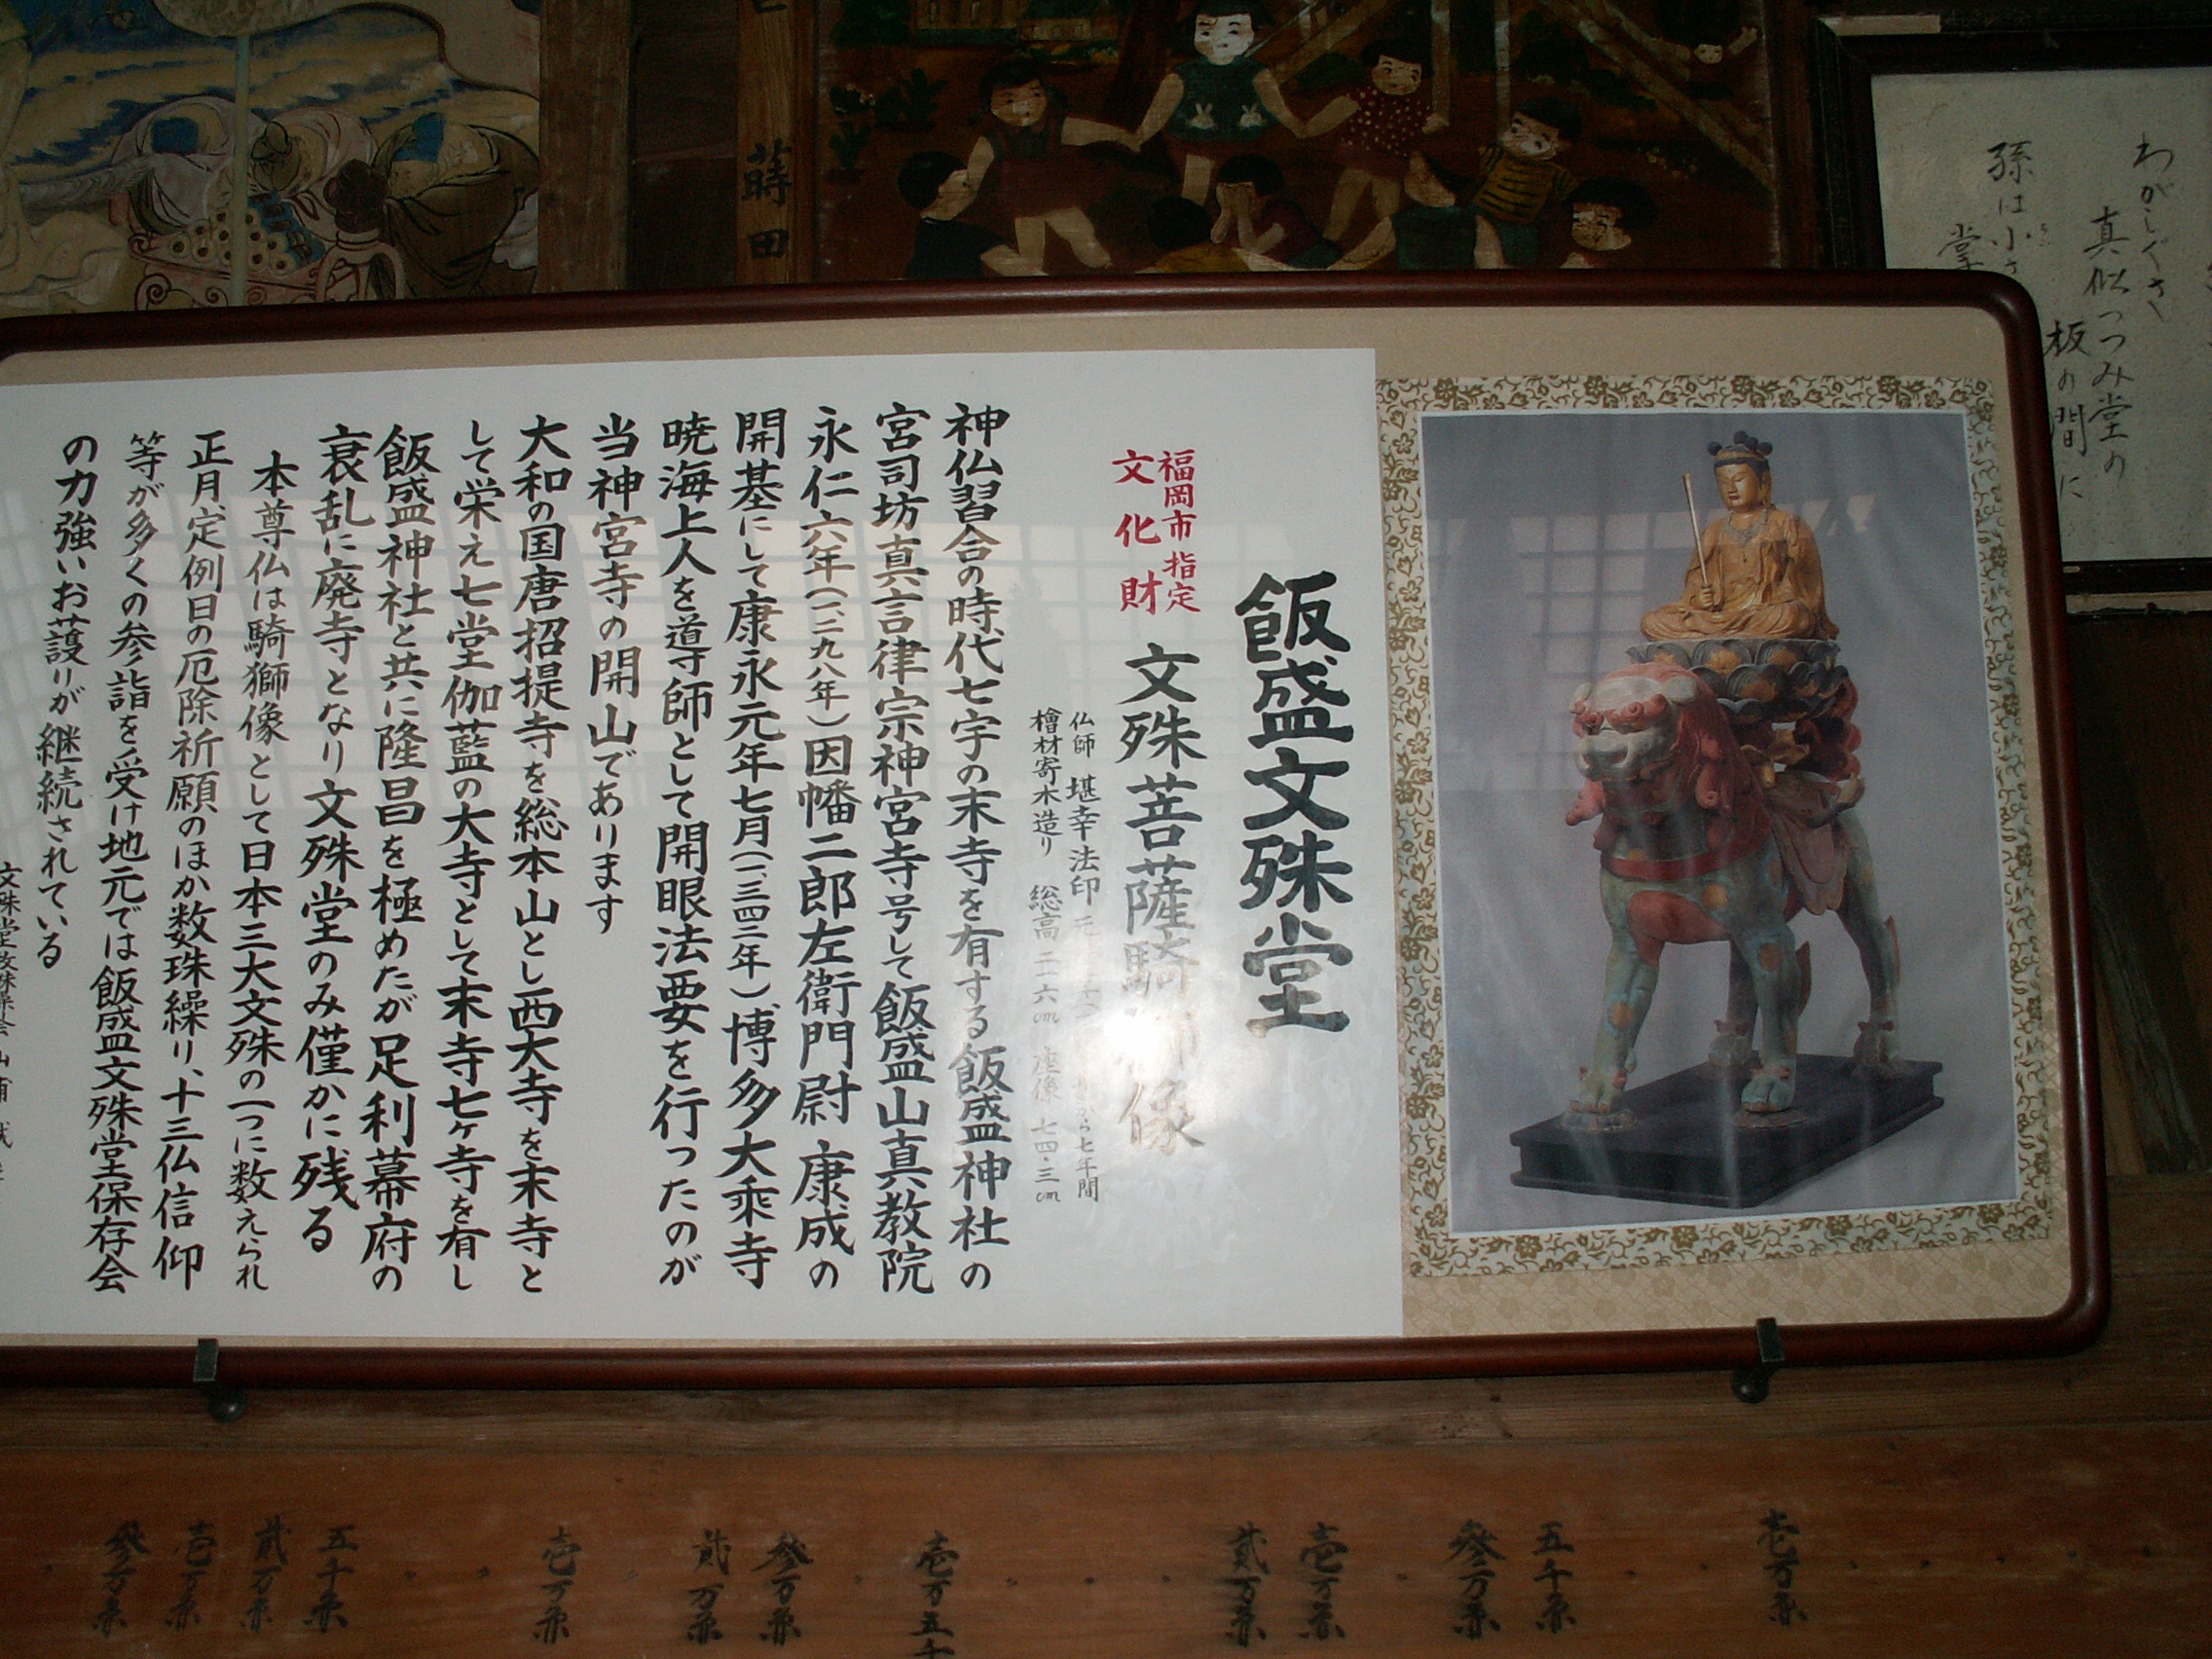 飯盛文殊堂
福岡市指定
文化財
文殊菩薩騎獅像
仏師 堪幸法印 元 から七年間
檜材寄木造り 総高二一六cm 座像七四・三cm
神仏習合の時代七宇の末寺を有する飯盛神社の
宮司坊真言律宗神宮寺号して飯盛山真教院
永仁六年(一二九八年)因幡二郎左衛門尉 康成の
開基にして康永元年七月(一、三四二年)、博多大乗寺
暁海上人を導師として開眼法要を行ったのが
当神宮寺の開山であります
大和の国唐招提寺を総本山とし西大寺を末寺と
して栄え七堂伽藍の大寺として末寺七ヶ寺を有し
飯盛神社と共に隆昌を極めたが足利幕府の
衰乱に廃寺となり文殊堂のみ僅かに残る
本尊仏は騎獅像として日本三大文殊の一つに数えられ
正月、定例日の厄除祈願のほか数珠繰り、十三仏信仰
等が多くの参詣を受け地元では飯盛文殊堂保存会
の力強いお護りが継続されている
蒔田
わがしぐさ
真似つつみ堂の
板の間に
孫は小さ
掌
壱万円
五千円
参万円
壱万円
貳万円
壱万五千
参万円
貳万円
壱万円
五千円
貳万円
壱万円
参万円